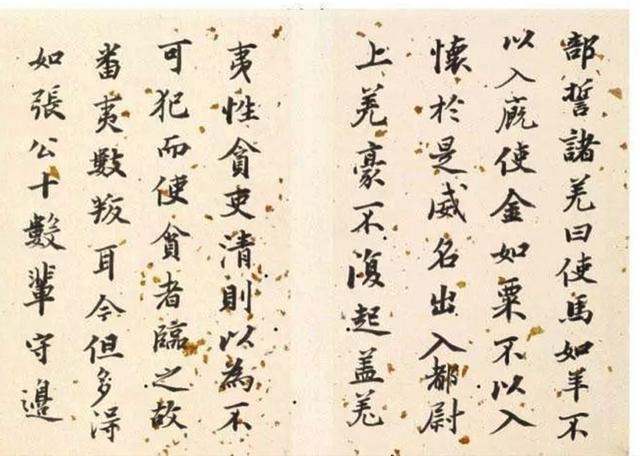 部誓諸羌曰使馬如羊不
以入廄使金如粟不以入
懷於是威名出入都尉
上羌豪不復起蓋羌
夷性貪吏清則以為不
可犯而使貪者臨之故
畨夷數叛耳今但多得
如張公十數輩守邊